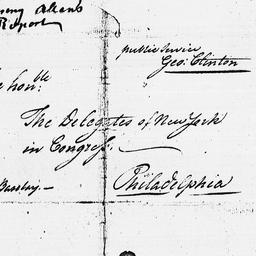 Report
public Service
Geo: Clinton
hon:ble
The Delegates of New York
in Congress.
Philadelphia